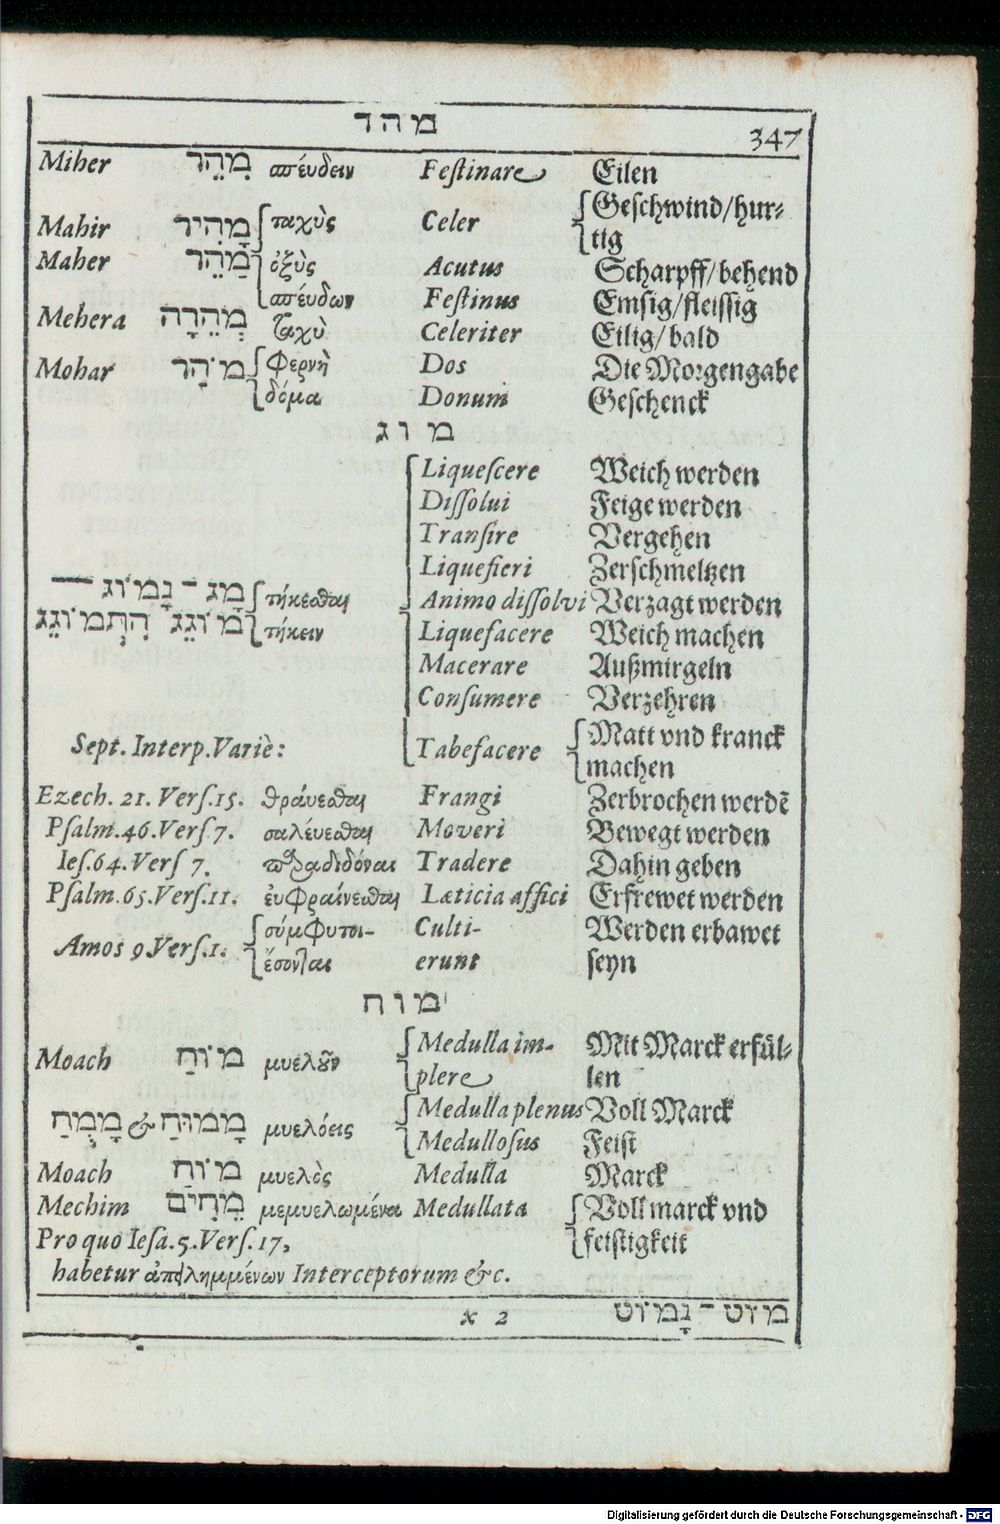 מהד
347
Miher מִהֵר σπέυδειν Festinare Eilen
Mahir מָהִיר ταχὺς Celer Geschwind/hur-
tig
Maher מַהֵר ὀξὺς Acutus Scharpff/behend
σπέυδων Festinus Emsig/fleissig
Mehera מְהֵרָה ταχὺ Celeriter Eilig/bald
Mohar מוֹהָר Φερνὴ Dos Die Morgengabe
δόμα Donum Geschenck
מוג
Liquescere Weich werden
Dissolui Feige werden
Transire Vergehen
Liquefieri Zerschmeltzen
מָג - נָמוֹג — τήκεσθαι Animo dissolvi Verzagt werden
מוֹגֵג הִתְמוֹגֵג τήκειν Liquefacere Weich machen
Macerare Außmirgeln
Consumere Verzehren
Sept. Interp. Variè: Tabefacere Matt vnd kranck
machen
Ezech. 21. Vers. 15. θράυεσθαι Frangi Zerbrochen werdē
Psalm. 46. Vers 7. σαλέυεσθαι Moveri Bewegt werden
Ies. 64. Vers 7. παραδιδόναι Tradere Dahin geben
Psalm. 65. Vers. 11. ἐυφραίνεσθαι Læticia affici Erfrewet werden
Amos 9 Vers. 1. σύμφυτοι- Culti- Werden erbawet
ἔσονται erunt seyn
מוח
Moach מוֹחַ μυελοῦν Medulla im- Mit Marck erfül-
plere len
מָמוּחַ & מָמְחַ μυελόεις Medulla plenus Voll Marck
Medullosus Feist
Moach מוֹחַ μυελὸς Medulla Marck
Mechim מֵחִים μεμυελωμένα Medullata Voll marck vnd
Pro quo Iesa. 5. Vers. 17, feistigkeit
habetur ἀπειλημμένων Interceptorum &c.
x 2 מוֹט - נָמוֹט
Digitalisierung gefördert durch die Deutsche Forschungsgemeinschaft - DFG